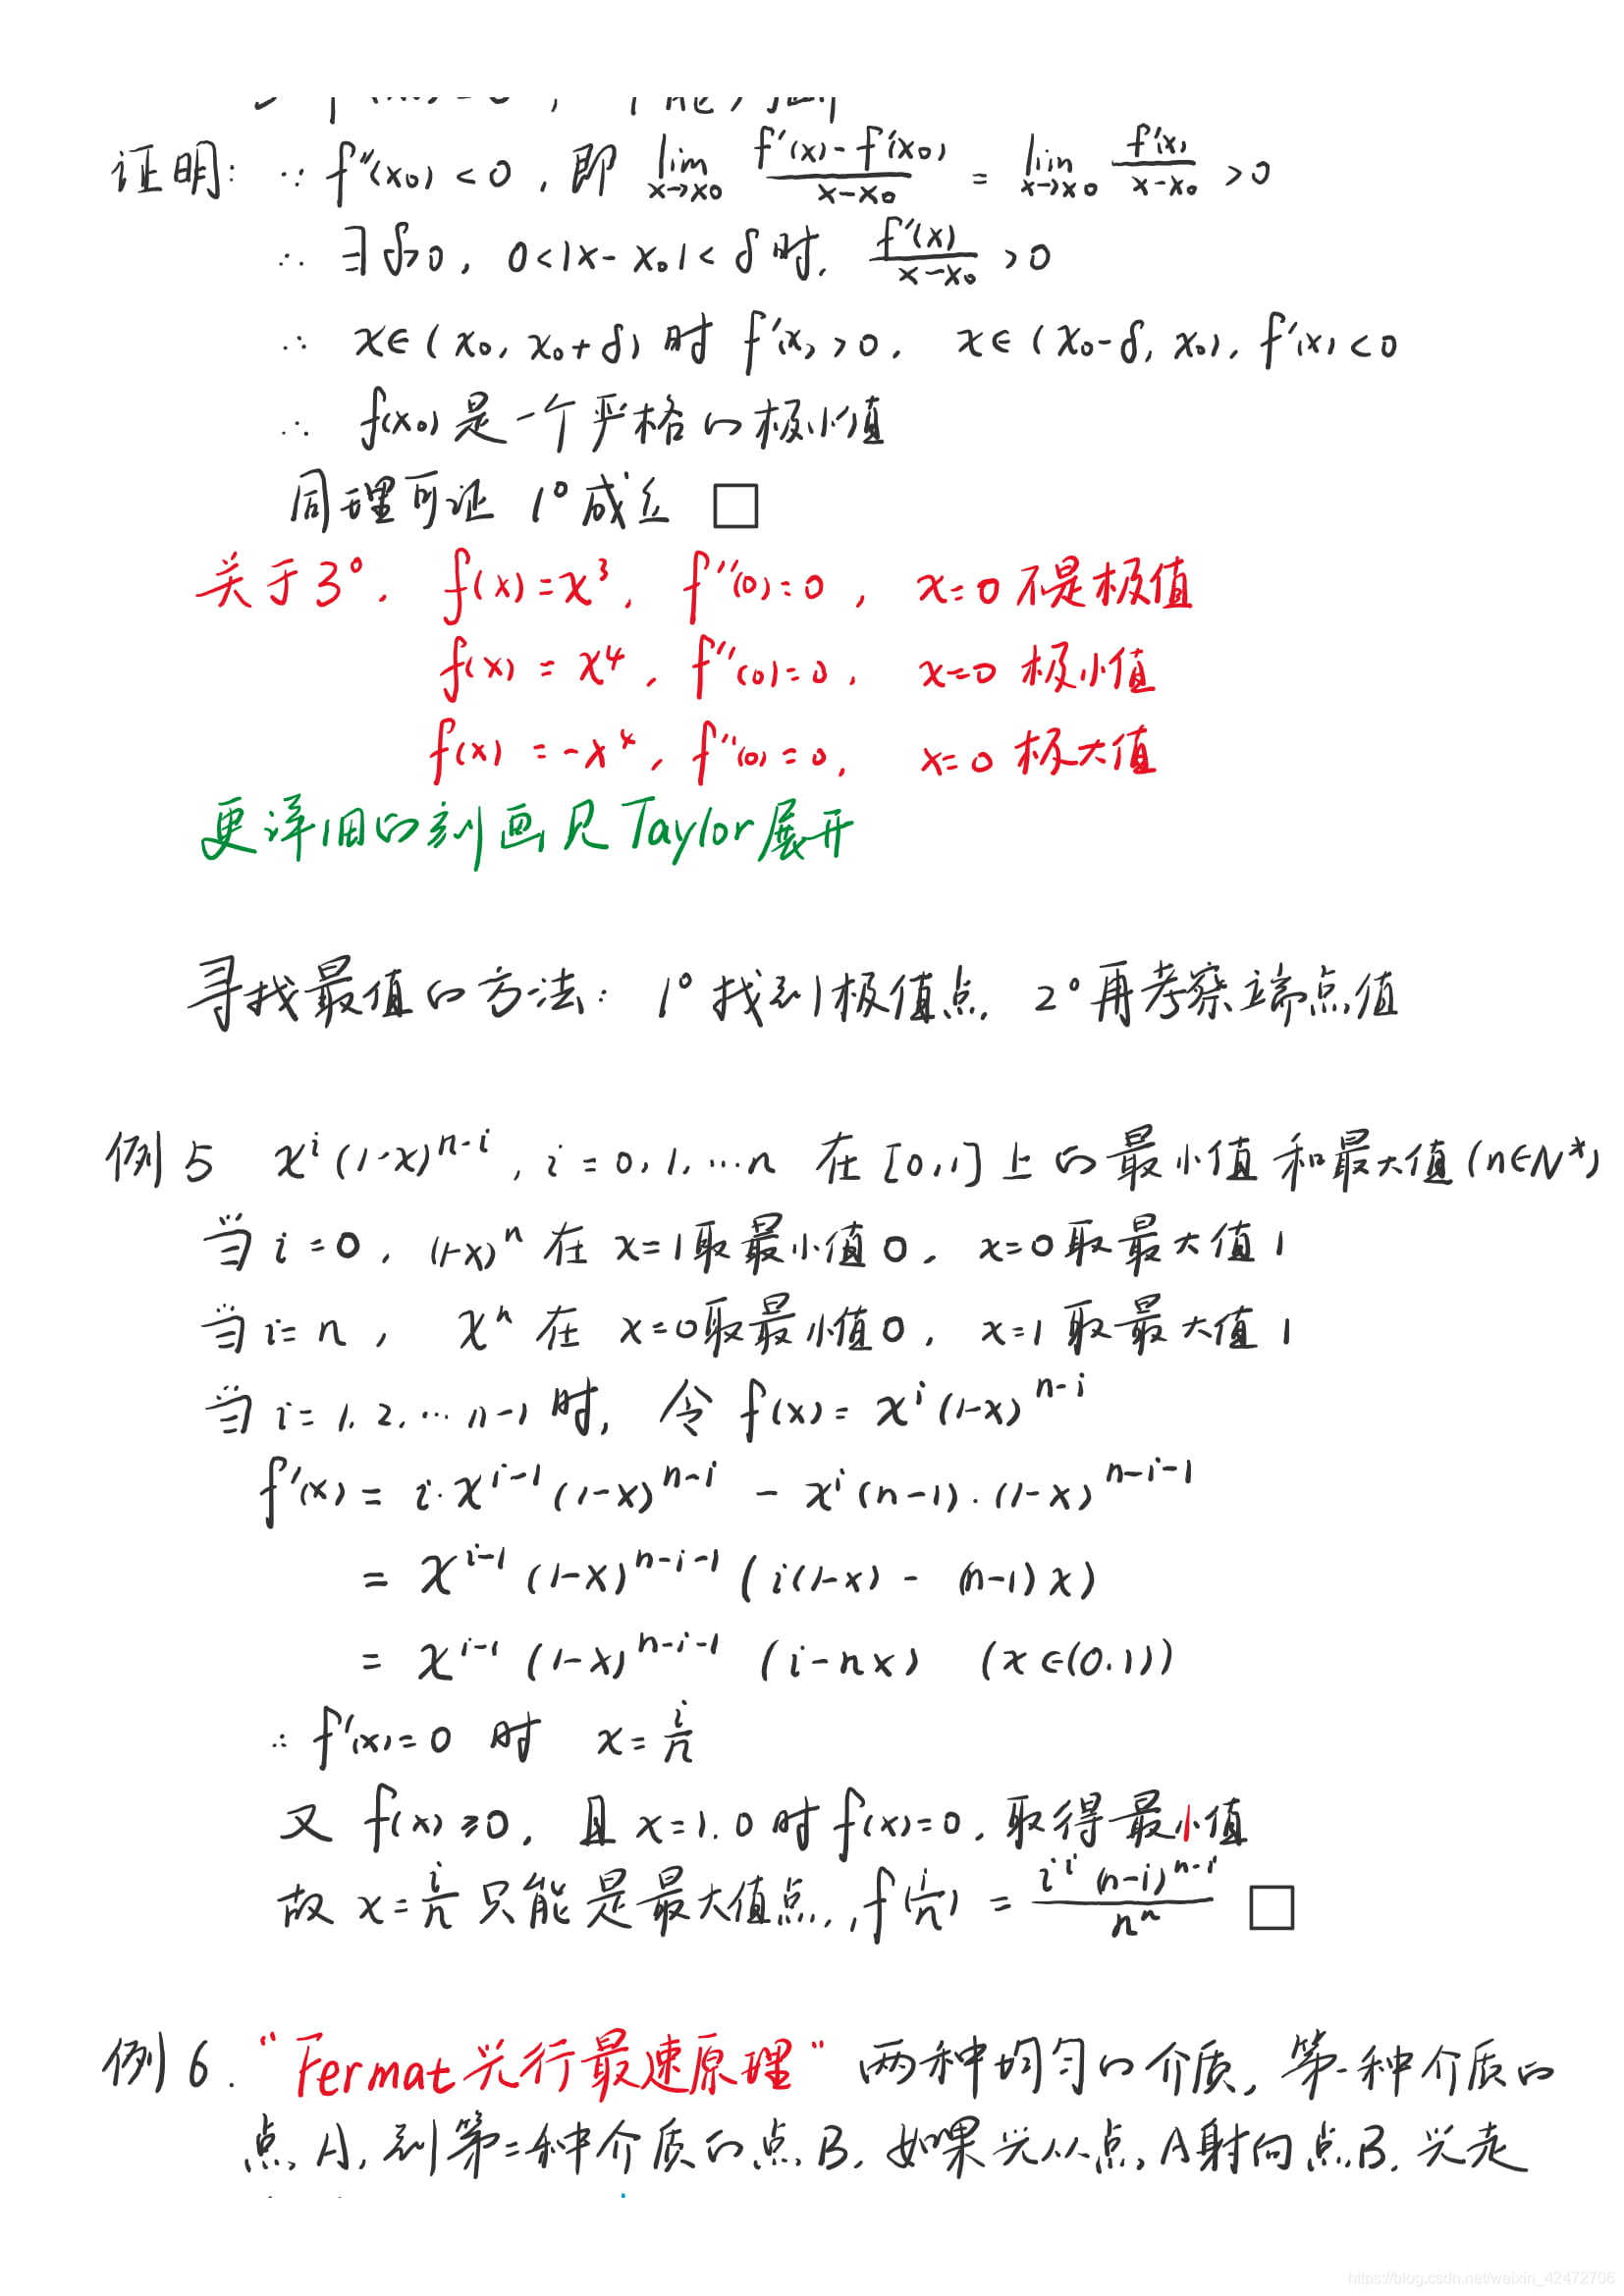 证明: ∵ f''(x₀) < 0, 即 lim_{x→x₀} (f'(x) - f'(x₀))/(x - x₀) = lim_{x→x₀} f'(x)/(x - x₀) > 0
∴ ∃ δ>0, 0<|x - x₀| < δ 时, f'(x)/(x - x₀) > 0
∴ x∈(x₀, x₀+δ) 时 f'(x) > 0, x∈(x₀-δ, x₀), f'(x) < 0
∴ f(x₀) 是一个严格的极小值
同理可证 1° 成立 □
关于3°, f(x) = x³, f''(0) = 0, x=0 不是极值
f(x) = x⁴, f''(0) = 0, x=0 极小值
f(x) = -x⁴, f''(0) = 0, x=0 极大值
更详细的刻画见Taylor展开
寻找最值的方法: 1° 找到极值点, 2° 再考察端点值
例5 xⁱ(1-x)ⁿ⁻ⁱ, i = 0, 1, …n 在 [0,1] 上的最小值和最大值 (n∈N*)
当 i = 0, (1-x)ⁿ 在 x=1 取最小值0, x=0 取最大值 1
当 i = n, xⁿ 在 x=0取最小值0, x=1 取最大值 1
当 i = 1, 2, … n-1 时, 令 f(x) = xⁱ(1-x)ⁿ⁻ⁱ
f'(x) = i·xⁱ⁻¹(1-x)ⁿ⁻ⁱ - xⁱ(n-1)·(1-x)ⁿ⁻ⁱ⁻¹
= xⁱ⁻¹(1-x)ⁿ⁻ⁱ⁻¹(i(1-x) - (n-1)x)
= xⁱ⁻¹(1-x)ⁿ⁻ⁱ⁻¹(i-nx) (x∈(0,1))
∴ f'(x) = 0 时 x = i/n
又 f(x) ≥ 0, 且 x=1, 0 时 f(x)=0, 取得最小值
故 x = i/n 只能是最大值点, f(i/n) = iⁱ(n-i)ⁿ⁻ⁱ/nⁿ □
例6. "Fermat光行最速原理" 两种均匀的介质, 第一种介质的
点A, 到第二种介质的点B, 如果光从点A射向点B, 光走
https://blog.csdn.net/weixin_42472706